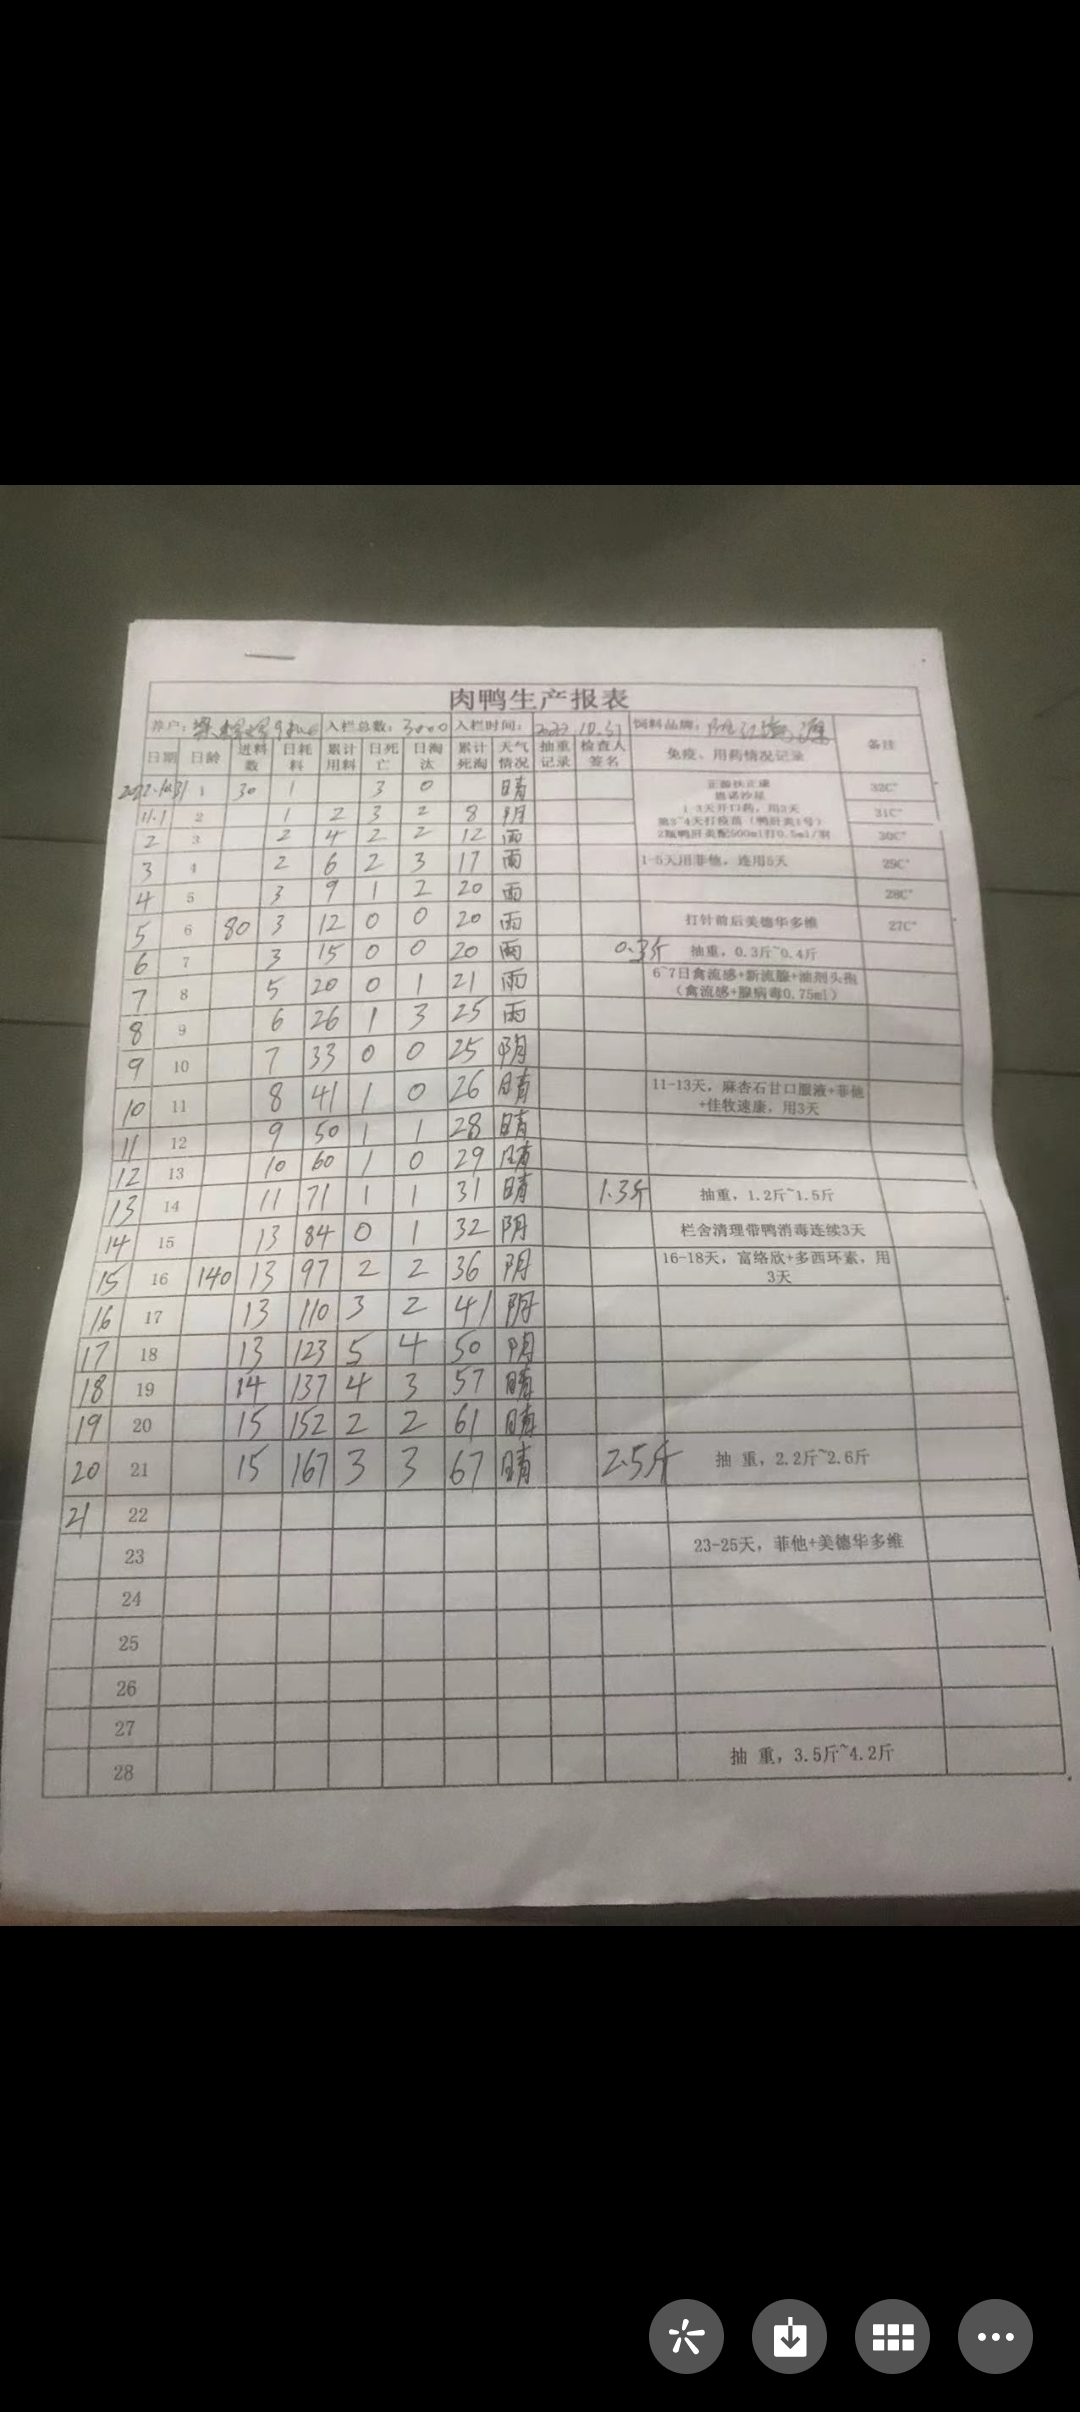 肉鸭生产报表
养户： 入栏总数：3000 入栏时间：2022.10.31 饲料品牌： 备注
日期 日龄 进料数 日耗料 累计用料 日死亡 日淘汰 累计死淘 天气情况 抽重记录 检查人签名 免疫、用药情况记录
2022.10.31 1 30 1 3 0 晴 32C°
11.1 2 1 2 3 2 8 阴 1-3天开口药，用3天 31C°
2 3 2 4 2 2 12 雨 第3~4天打疫苗（鸭肝炎1号） 2瓶鸭肝炎配500ml打0.5ml/羽 30C°
3 4 2 6 2 3 17 雨 1-5天用菲他，连用5天 29C°
4 5 3 9 1 2 20 雨 28C°
5 6 80 3 12 0 0 20 雨 打针前后美德华多维 27C°
6 7 3 15 0 0 20 雨 0.3斤 抽重，0.3斤~0.4斤
7 8 5 20 0 1 21 雨 6~7日禽流感+新流腺+油剂头孢（禽流感+腺病毒0.75ml）
8 9 6 26 1 3 25 雨
9 10 7 33 0 0 25 阴
10 11 8 41 1 0 26 晴 11-13天，麻杏石甘口服液+菲他+佳牧速康，用3天
11 12 9 50 1 1 28 晴
12 13 10 60 1 0 29 晴
13 14 11 71 1 1 31 晴 1.3斤 抽重，1.2斤~1.5斤
14 15 13 84 0 1 32 阴 栏舍清理带鸭消毒连续3天
15 16 140 13 97 2 2 36 阴 16-18天，富络欣+多西环素，用3天
16 17 13 110 3 2 41 阴
17 18 13 123 5 4 50 阴
18 19 14 137 4 3 57 晴
19 20 15 152 2 2 61 晴
20 21 15 167 3 3 67 晴 2.5斤 抽 重，2.2斤~2.6斤
21 22
23 23-25天，菲他+美德华多维
24
25
26
27
28 抽 重，3.5斤~4.2斤